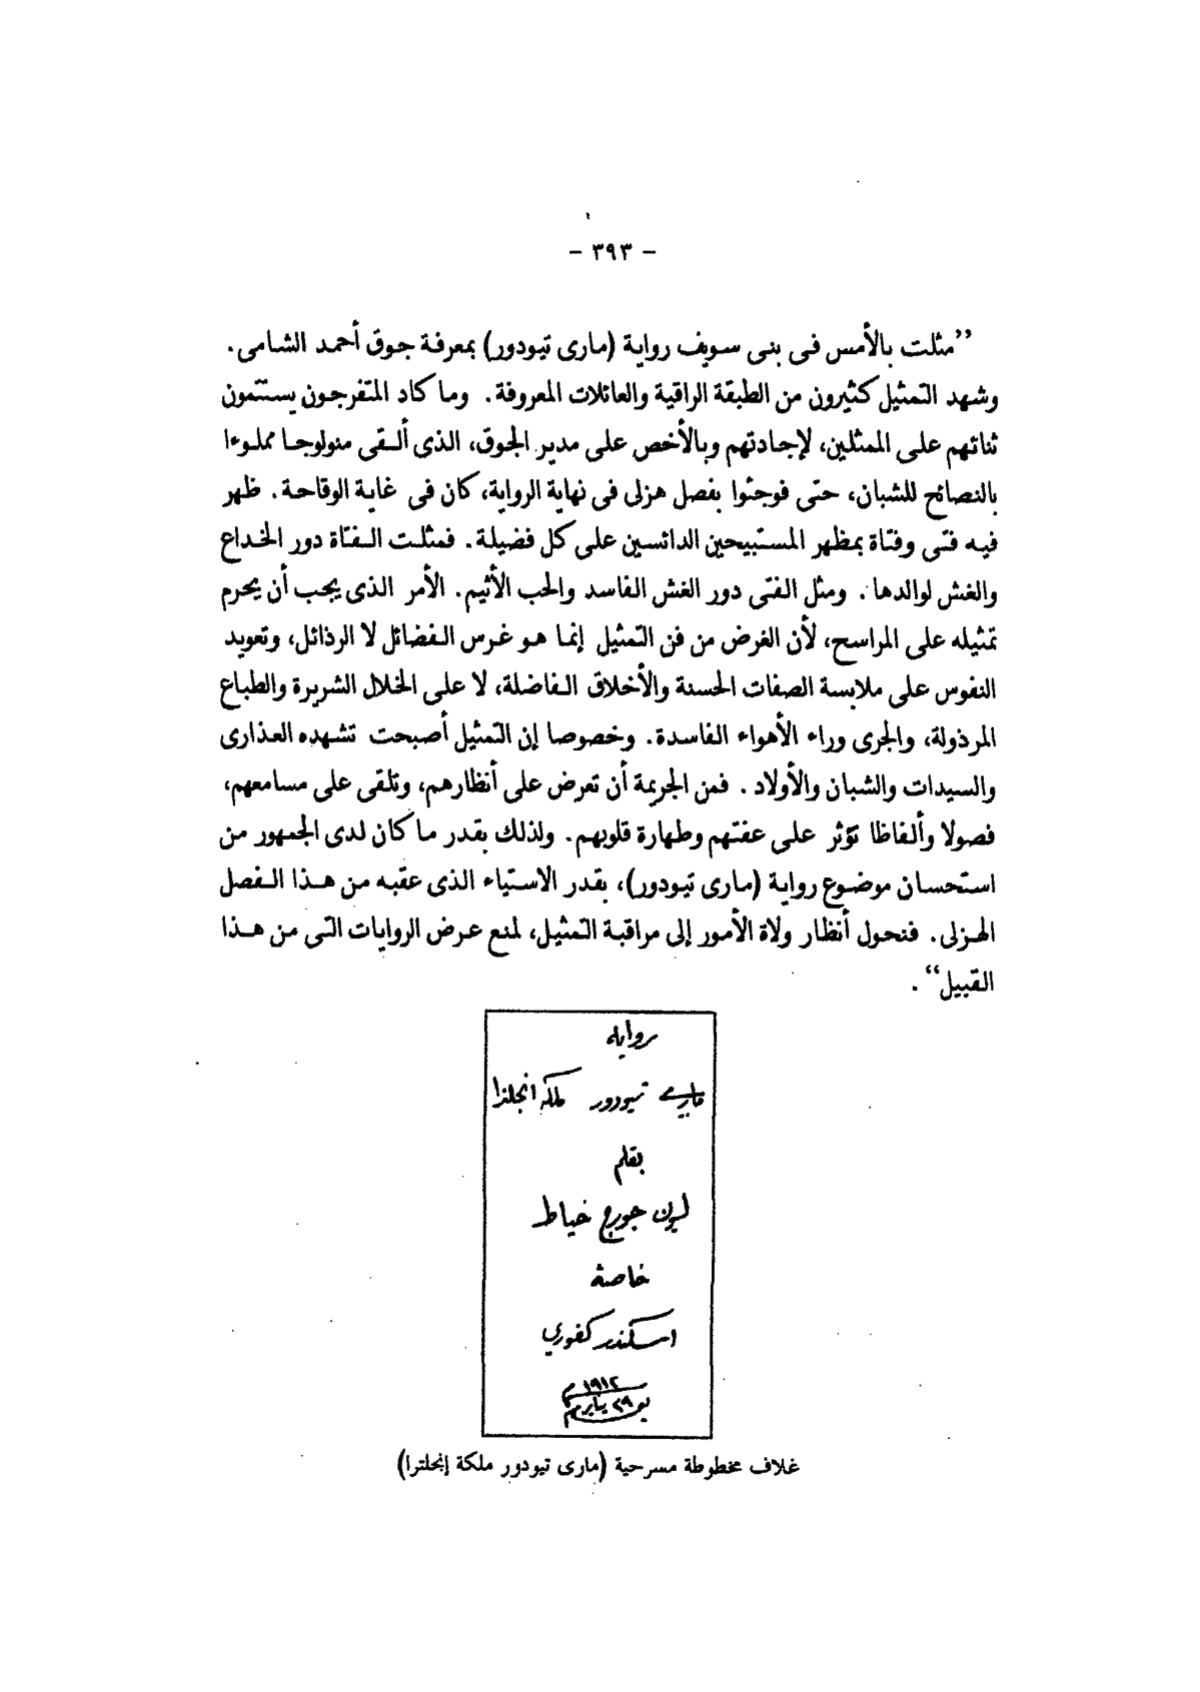 - ٣٩٣ -
”مثلت بالأمس فى بنى سويف رواية (مارى تيودور) بمعرفة جوق أحمد الشامى.
وشهد التمثيل كثيرون من الطبقة الراقية والعائلات المعروفة. وما كاد المتفرجون يستتمون
ثنائهم على الممثلين، لإجادتهم وبالأخص على مدير الجوق، الذى ألقى منولوجا مملوءا
بالنصائح للشبان، حتى فوجئوا بفصل هزلى فى نهاية الرواية، كان فى غاية الوقاحة. ظهر
فيه فتى وفتاة بمظهر المستبيحين الدائسين على كل فضيلة. فمثلت الفتاة دور الخداع
والغش لوالدها. ومثل الفتى دور الغش الفاسد والحب الأثيم. الأمر الذى يجب أن يحرم
تمثيله على المراسح، لأن الغرض من فن التمثيل إنما هو غرس الفضائل لا الرذائل، وتعويد
النفوس على ملابسة الصفات الحسنة والأخلاق الفاضلة، لا على الخلال الشريرة والطباع
المرذولة، والجرى وراء الأهواء الفاسدة. وخصوصا إن التمثيل أصبحت تشهده العذارى
والسيدات والشبان والأولاد. فمن الجريمة أن تعرض على أنظارهم، وتلقى على مسامعهم،
فصولا وألفاظا تؤثر على عفتهم وطهارة قلوبهم. ولذلك بقدر ما كان لدى الجمهور من
استحسان موضوع رواية (مارى تيودور)، بقدر الاستياء الذى عقبه من هذا الفصل
الهزلى. فنحول أنظار ولاة الأمور إلى مراقبة التمثيل، لمنع عرض الروايات التى من هذا
القبيل“.
روايه
ماري تيودور ملكة انجلترا
بقلم
ليون جورج خياط
خاصة
اسكندر كفوري
١٩١٢م
٢٩ يناير
غلاف مخطوطة مسرحية (مارى تيودور ملكة إنجلترا)